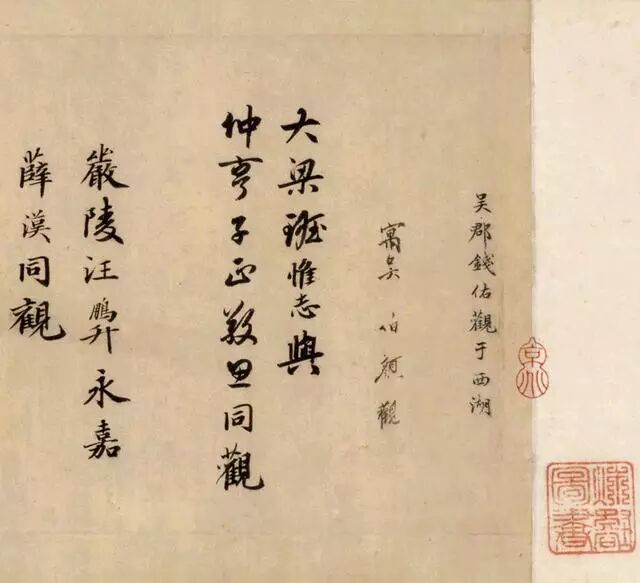 吳郡錢佑觀于西湖
寓吳伯顏觀
大梁班惟志與
仲亨子正敬思同觀
嚴陵汪鵬升永嘉
薛漢同觀